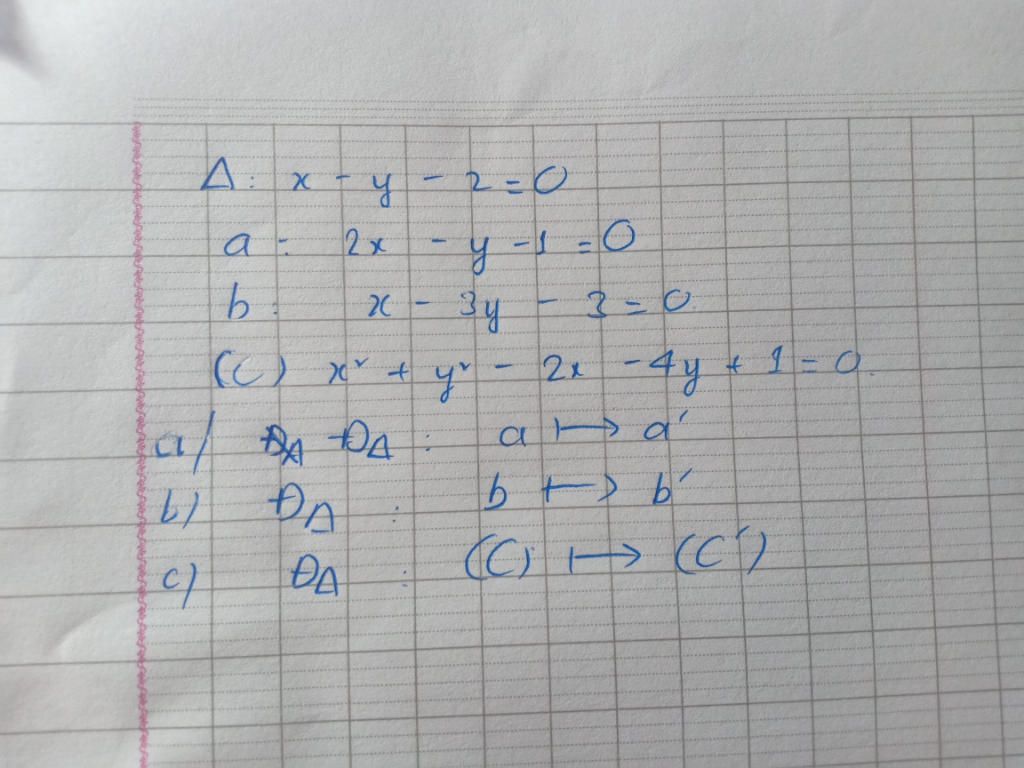 Δ: x - y - 2 = 0
a: 2x - y - 1 = 0
b: x - 3y - 3 = 0
(C) x² + y² - 2x - 4y + 1 = 0.
a/ Đ_Δ : a ↦ a'
b) Đ_Δ : b ↦ b'
c) Đ_Δ : (C) ↦ (C')